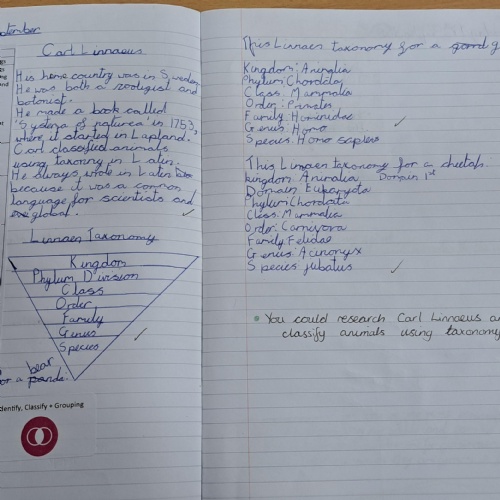 Carl Linnaeus
His home country was in Sweden
He was both a zoologist and
botonist.
He made a book called
'Systema of naturea' in 1753,
where it started in Lapland.
Carl classified animals
using taxoniny in Latin.
He always wrote in Latin
because it was a common
language for scientists and
global.
Linnaen Taxonomy
Kingdom
Phylum Division
Class
Order
Family
Genus
Species
bear
or a panda.
dentify, Classify + Grouping
This Linnaen taxonomy for a
Kingdom: Animalia
Phylum: Chordata
Class: Mammalia
Order: Primates
Family: Hominidae
Genus: Homo
Species: Homo sapiens
This Linnaen taxonomy for a cheetah.
Kingdom Animalia Domain 1st
Domain Eukaryota
Phylum: Chordata
Class: Mammalia
Order: Carnivora
Family: Felidae
Genus: Acinonyx
Species jubatus
You could research Carl Linnaeus
classify animals using taxonomy